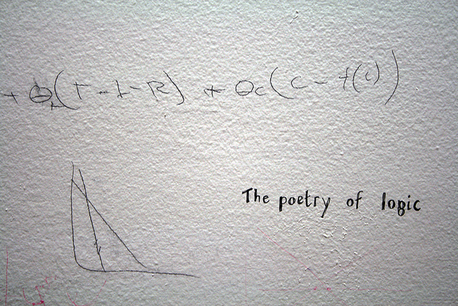 + Θ₁(T - L - R) + Θc(c - f(i))
The poetry of logic